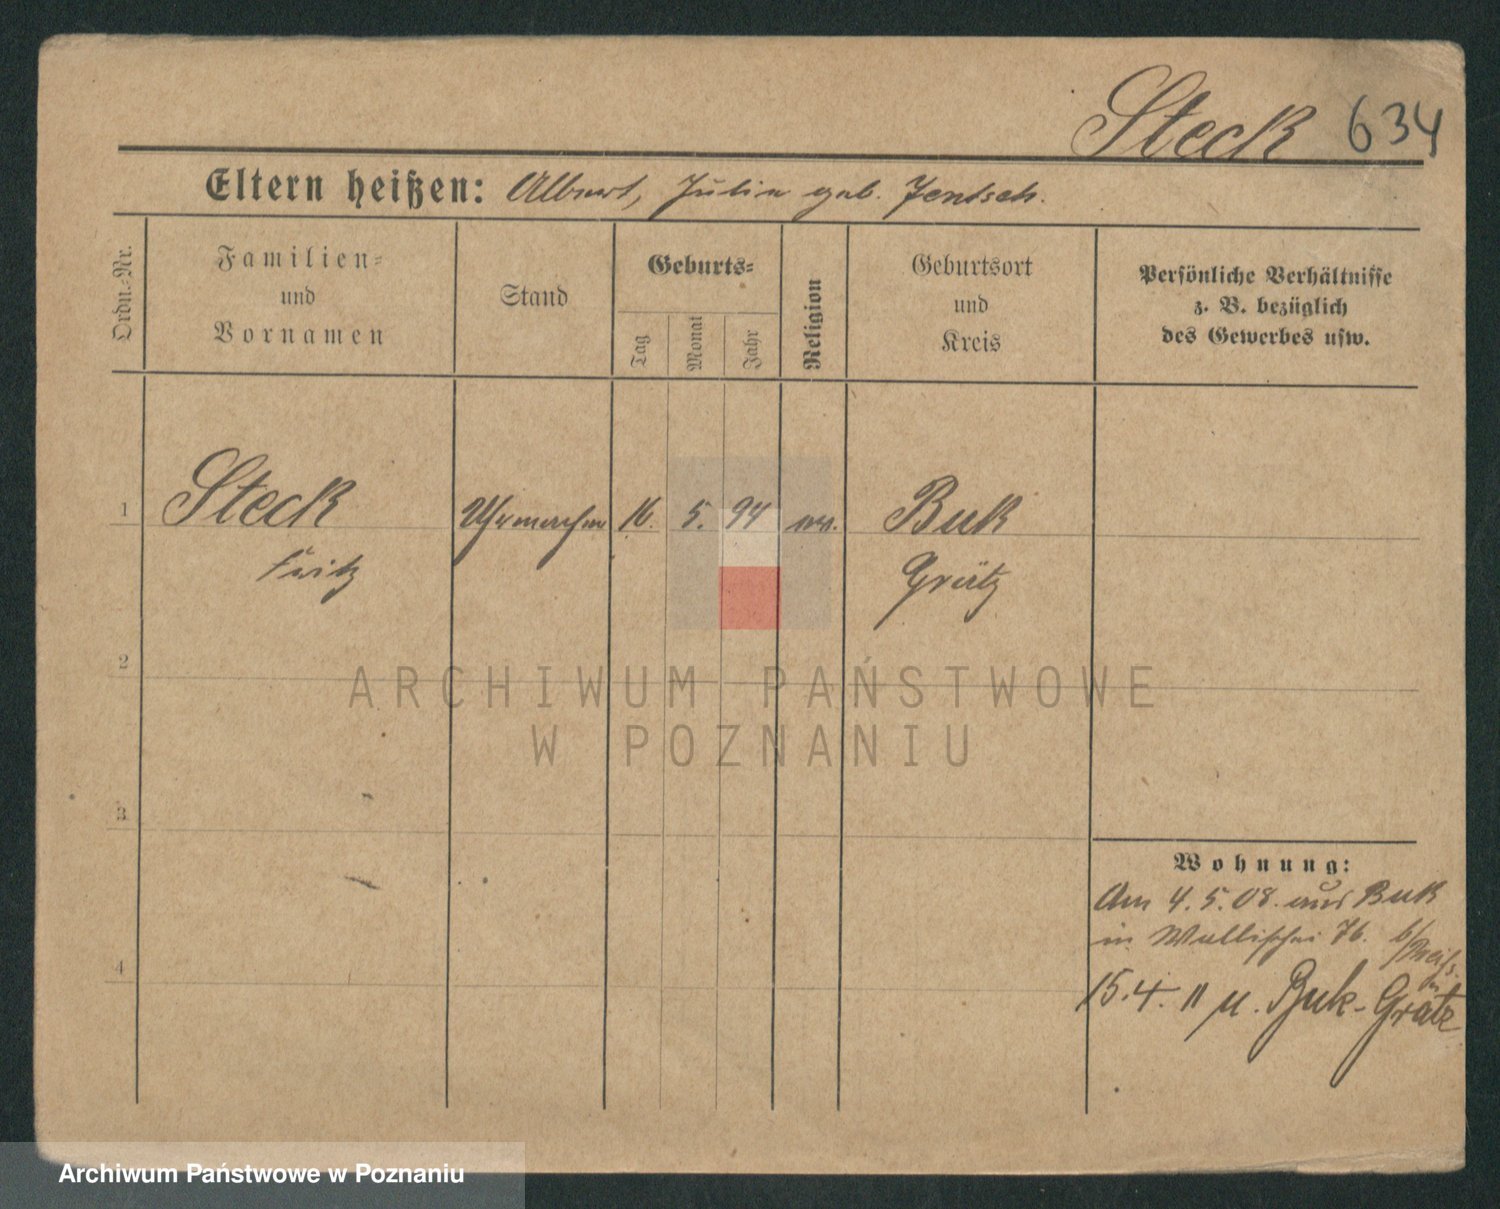 Steck 634
Eltern heißen: Albert, Julie geb. Jentsch.
Ordn.-Nr.
Familien-
und
Vornamen
Stand
Geburts-
Tag
Monat
Jahr
Religion
Geburtsort
und
Kreis
Persönliche Verhältnisse
z. B. bezüglich
des Gewerbes usw.
1 Steck Uhrmacher 16. 5. 94 ev. Buk
Fritz Grätz
2
3
4
Wohnung:
Am 4. 5. 08. aus Buk
in Wallischei 76. b/
15.4. 11 n. Buk-Grätz
ARCHIWUM PAŃSTWOWE
W POZNANIU
Archiwum Państwowe w Poznaniu